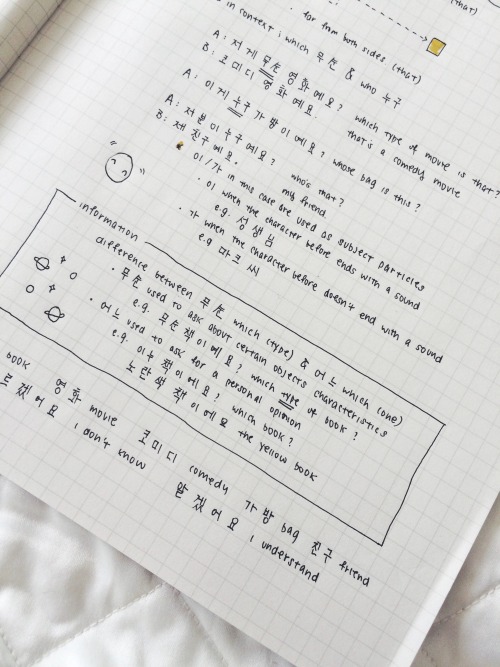 (that)
for from both sides (that)
in context : which 무슨 & who 누구
A: 저게 무슨 영화예요? which type of movie is that?
B: 코미디 영화예요. that's a comedy movie
A: 이게 누구 가방이예요? whose bag is this?
A: 저분이 누구예요? who's that?
B: 제 친구예요. my friend
· 이/가 in this case are used as subject particles
· 이 when the character before ends with a sound
e.g. 선생님
· 가 when the character before doesn't end with a sound
e.g 마크 씨
information
difference between 무슨 which (type) & 어느 which (one)
· 무슨 used to ask about certain objects characteristics
e.g. 무슨 책이예요? which type of book?
· 어느 used to ask for a personal opinion
e.g. 어누 책이예요? which book?
노란색 책이예요 the yellow book
book 영화 movie 코미디 comedy 가방 bag 친구 friend
르겠어요 i don't know 알겠어요 i understand